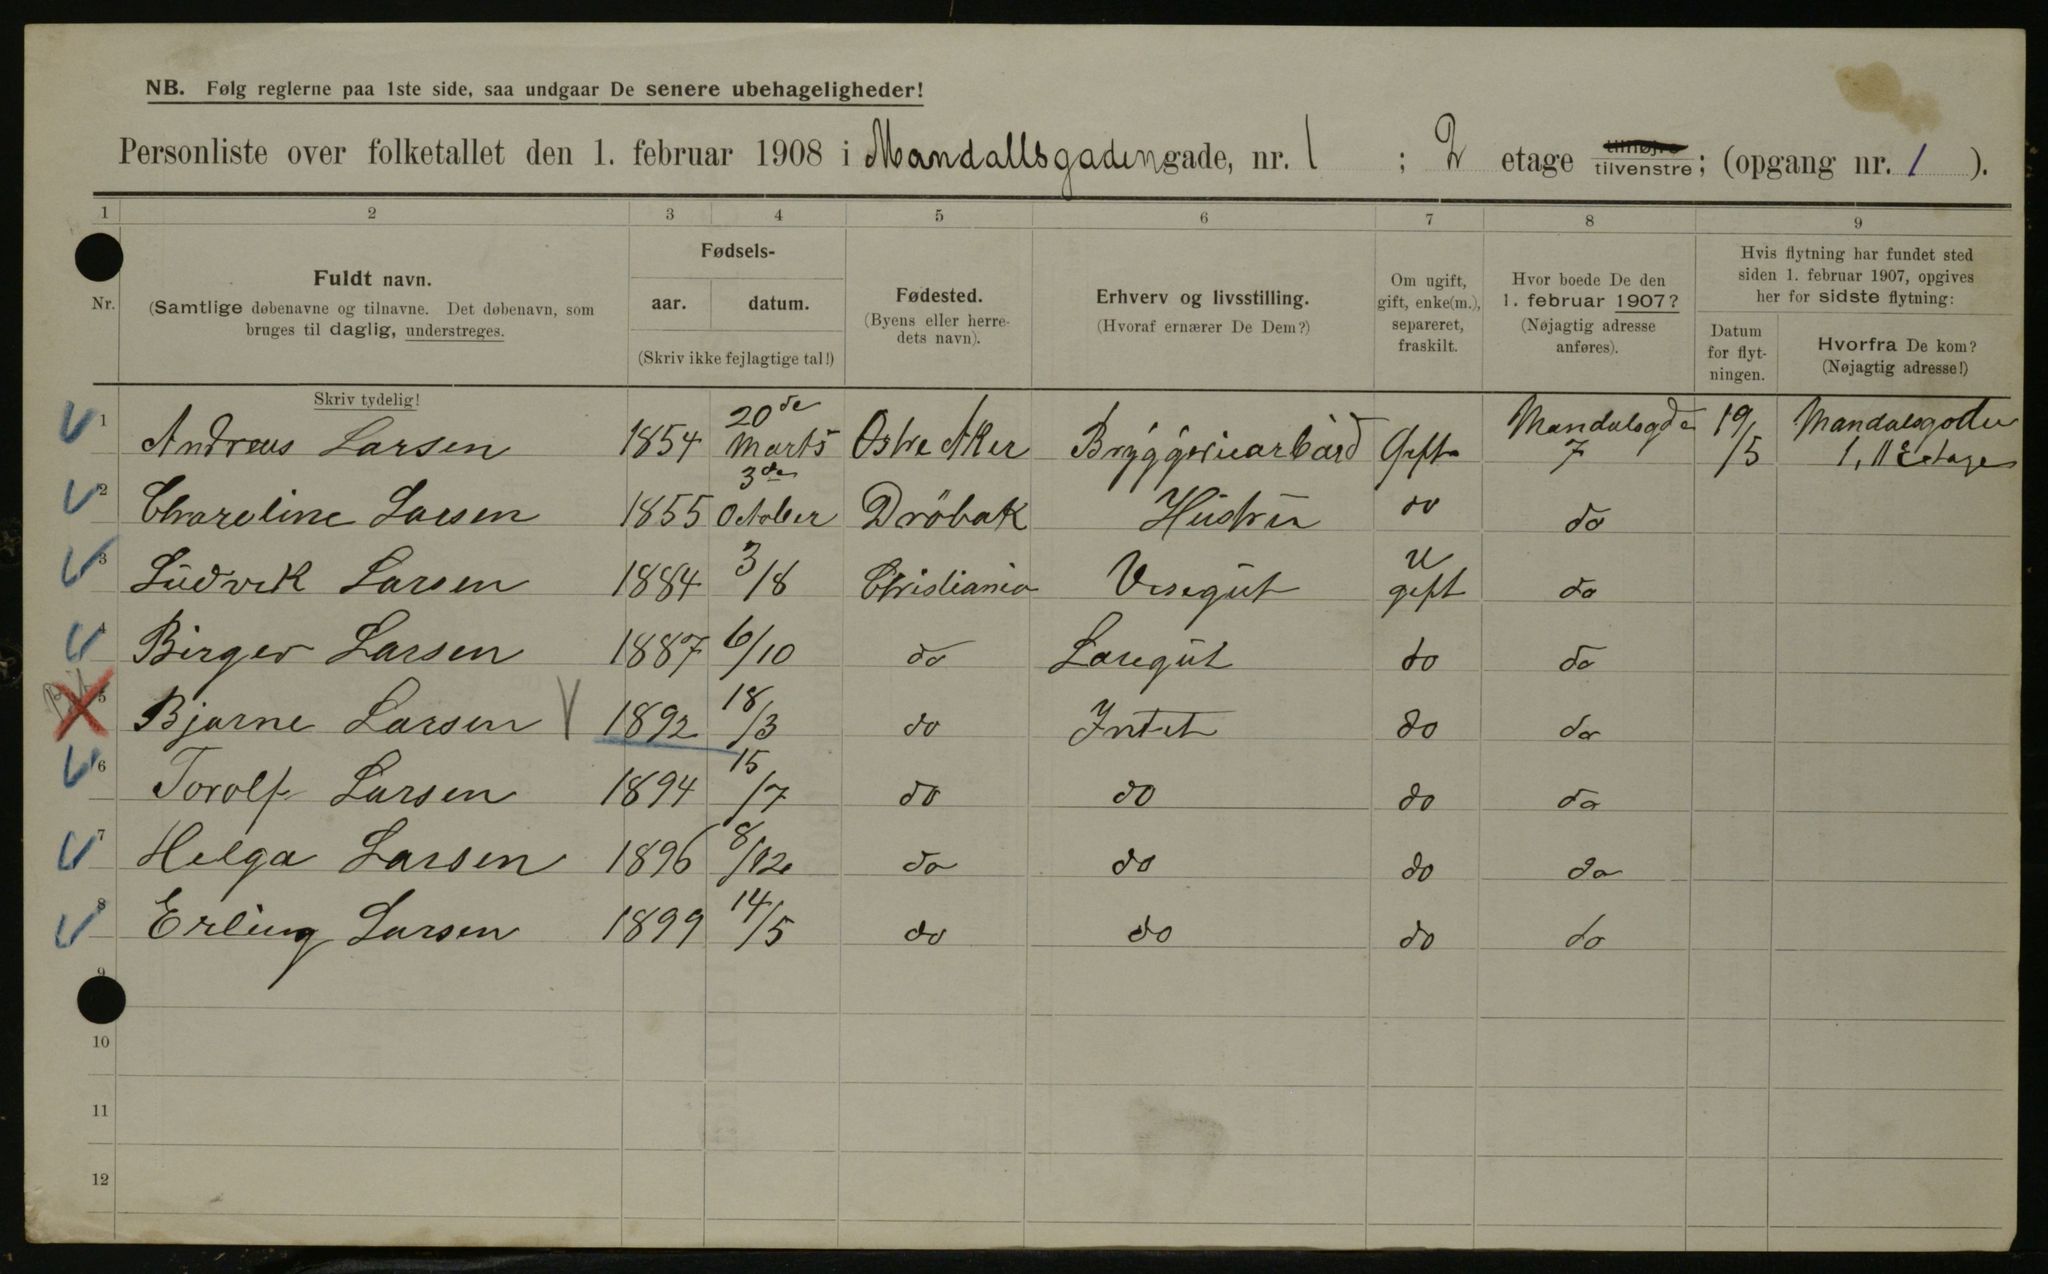 NB. Følg reglerne paa 1ste side, saa undgaar De senere ubehageligheder!
Personliste over folketallet den 1. februar 1908 i Mandallsgadengade, nr. 1 ; 2 etage tilhøjre tilvenstre; (opgang nr. 1 ).
1 2 3 4 5 6 7 8 9
Nr.
Fuldt navn.
(Samtlige døbenavne og tilnavne. Det døbenavn, som
bruges til daglig, understreges.
Skriv tydelig!
Fødsels-
aar. datum.
(Skriv ikke fejlagtige tal!)
Fødested.
(Byens eller herre-
dets navn).
Erhverv og livsstilling.
(Hvoraf ernærer De Dem?)
Om ugift,
gift, enke(m.),
separeret,
fraskilt.
Hvor boede De den
1. februar 1907?
(Nøjagtig adresse
anføres).
Hvis flytning har fundet sted
siden 1. februar 1907, opgives
her for sidste flytning:
Datum
for flyt-
ningen.
Hvorfra De kom?
(Nøjagtig adresse!)
1 Andreas Larsen 1854 20de Marts Ostre Aker Bryggeriearbard Gift Mandalsgde 7 19/5 Mandalsgaden 1, II Etage
2 Charoline Larsen 1855 3de October Dröbak Hustru do do
3 Ludvik Larsen 1884 3/8 Christiania Visegut U gift do
4 Birger Larsen 1887 6/10 do Laregut do do
5 Bjarne Larsen 1892 18/3 do Intet do do
6 Torolf Larsen 1894 15/7 do do do do
7 Helga Larsen 1896 8/12 do do do do
8 Erling Larsen 1899 14/5 do do do do
9
10
11
12